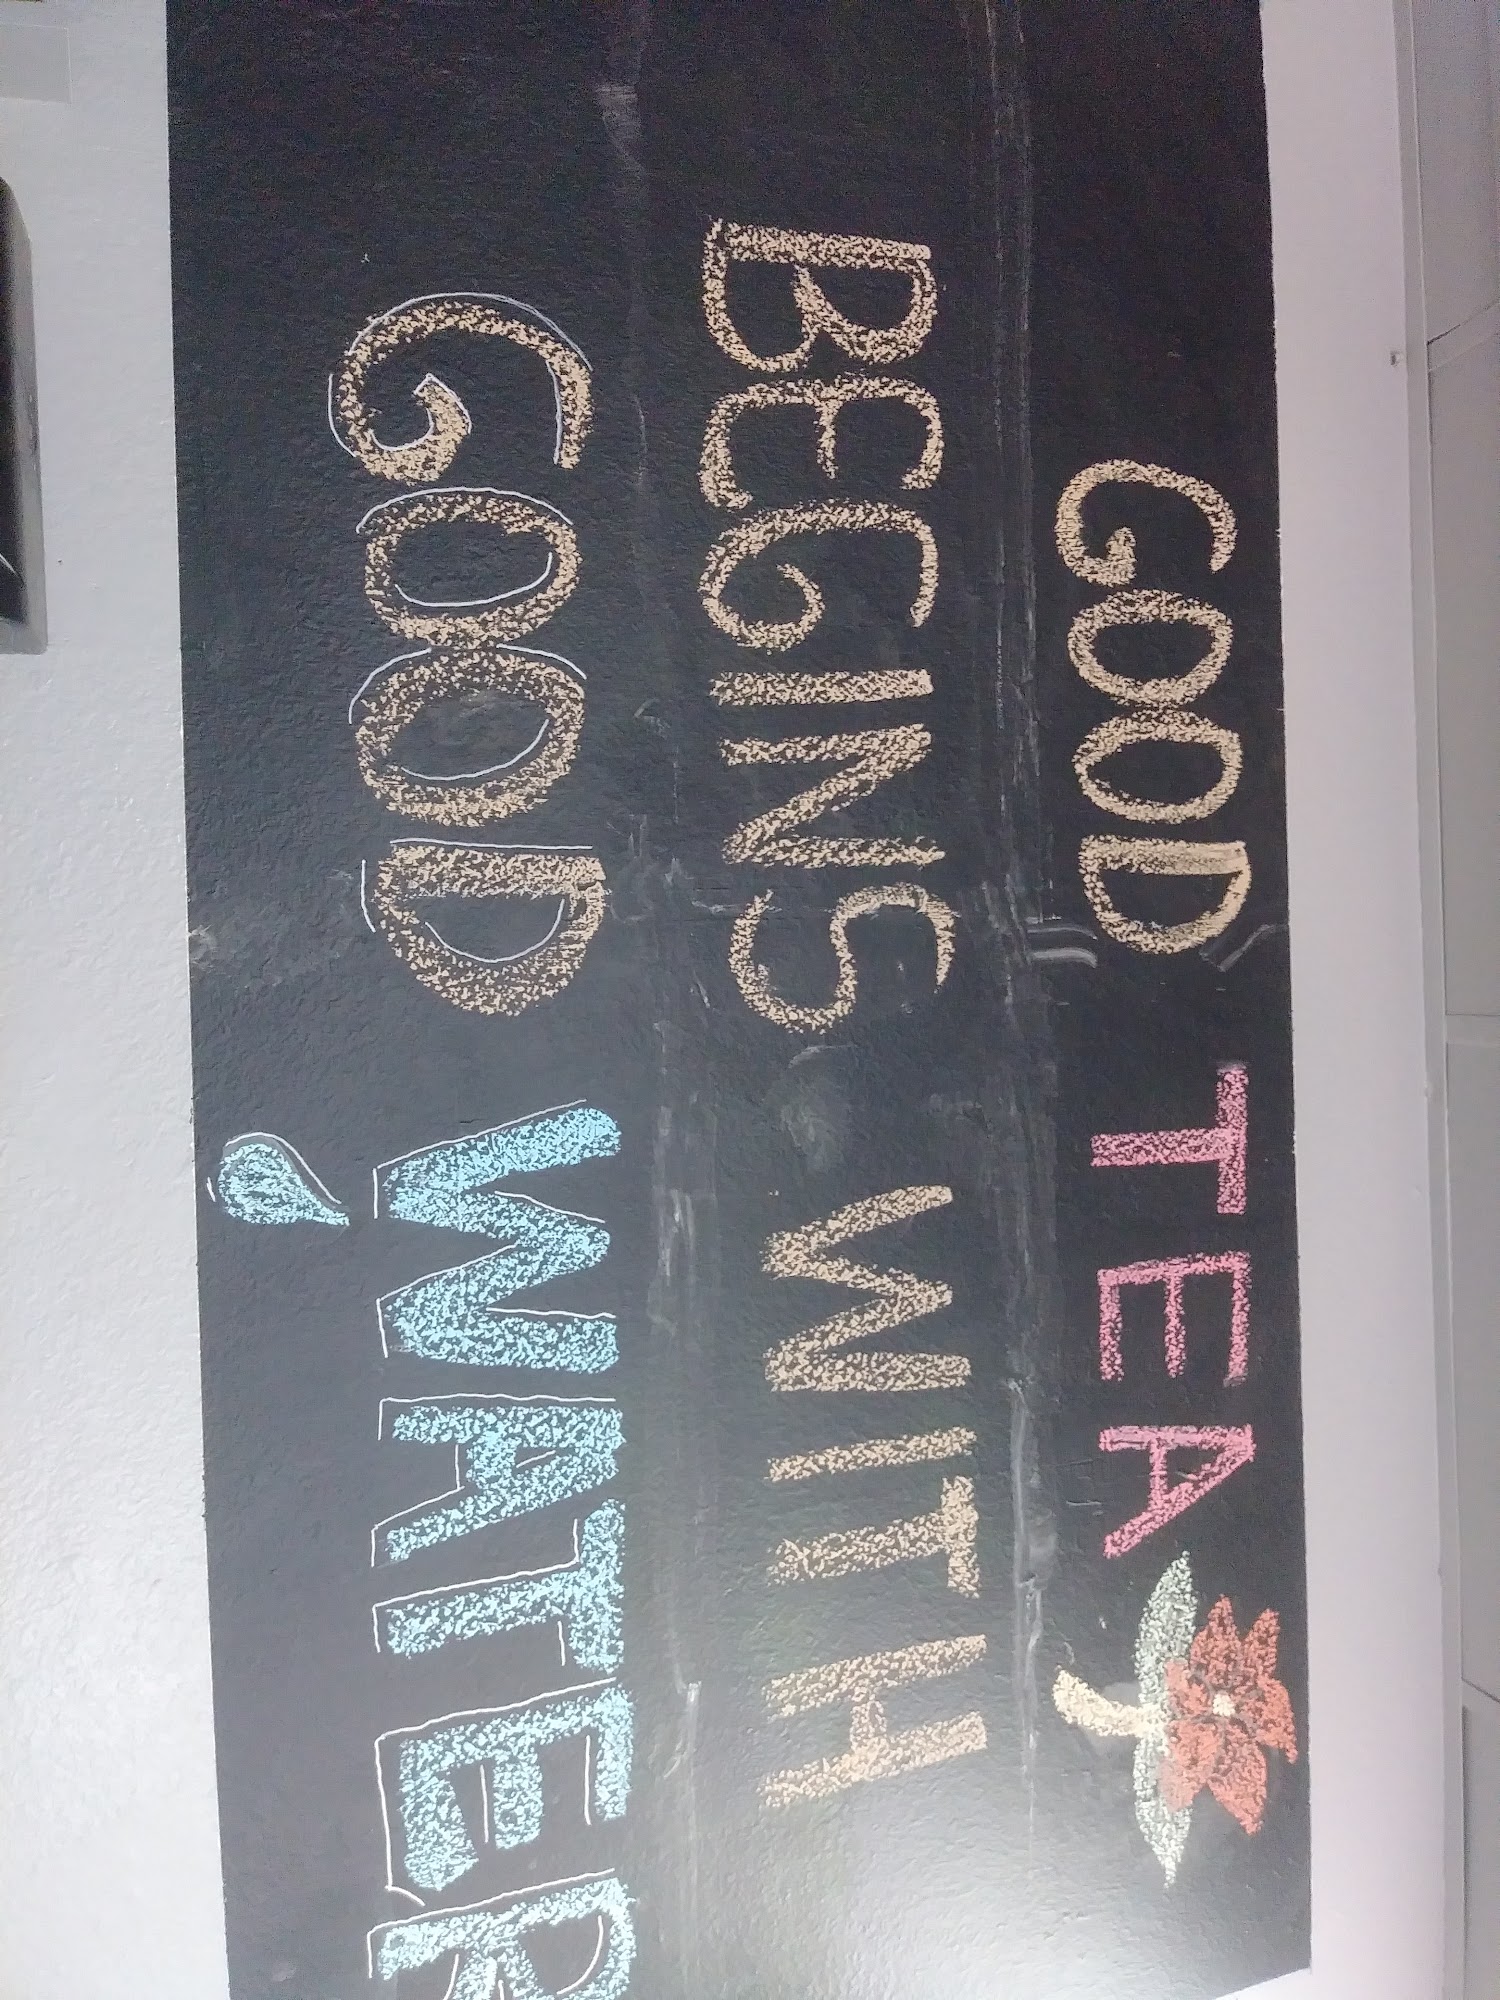 GOOD TEA
BEGINS WITH
GOOD WATER